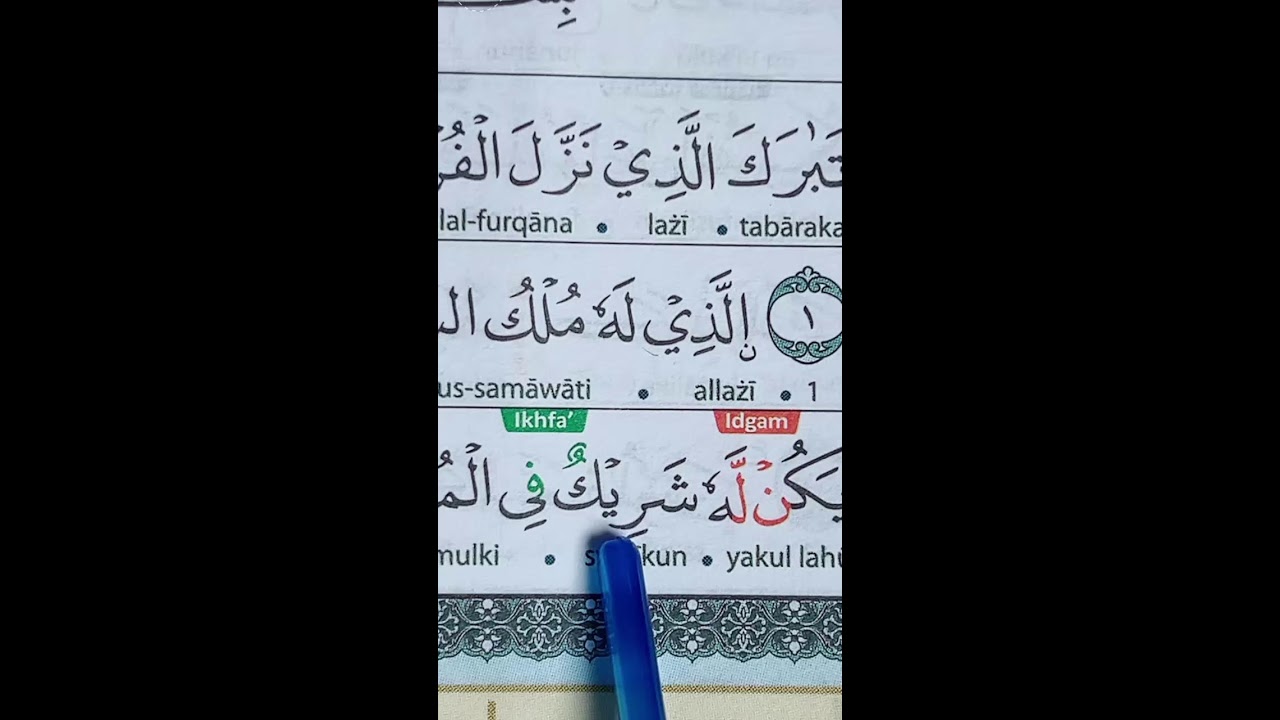 تَبٰرَكَ الَّذِيْ نَزَّلَ
tabāraka • lażī • lal-furqāna
١ ࣙالَّذِيْ لَهٗ مُلْكُ
1 • allażī • us-samāwāti
Idgam Ikhfa’
يَكُنْ لَّهٗ شَرِيْكٌ فِى
yakul lahū • kun • mulki